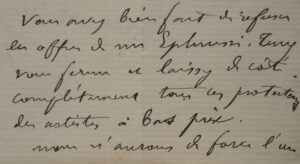 Vous avez bien fait de refuser
les offres de mrs Ephrussi. Tenez
vous ferme et laissez de côté
complètement tous ces protecteurs
des artistes à bas prix.
nous n'aurons de force l'un